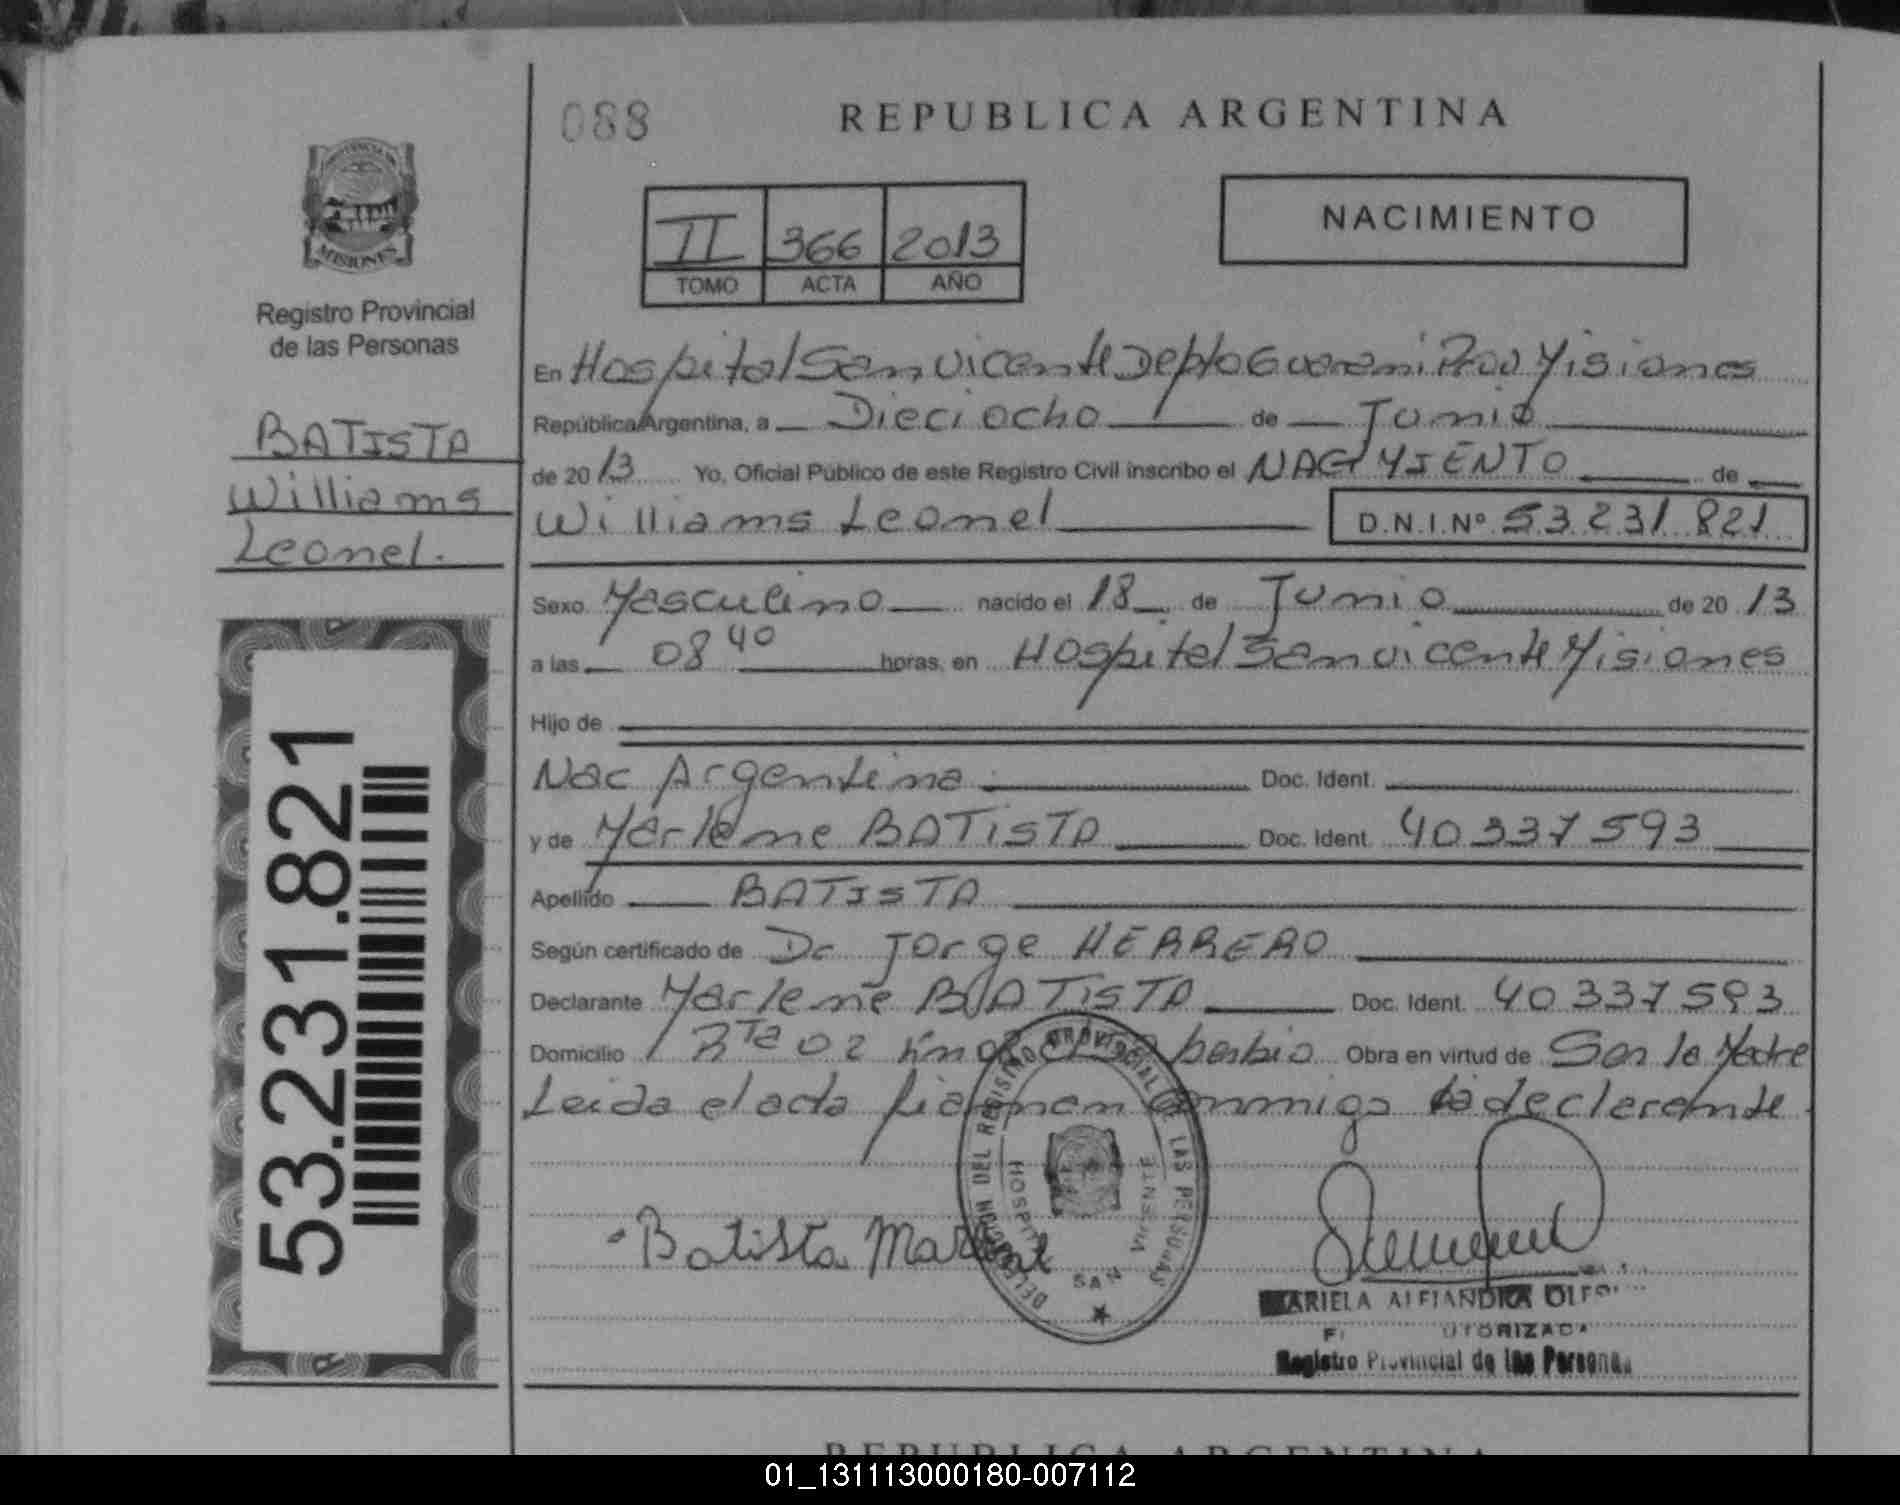 088
REPUBLICA ARGENTINA
PROVINCIA DE
MISIONES
Registro Provincial
de las Personas
II 366 2013
TOMO ACTA AÑO
NACIMIENTO
BATISTA
Williams
Leonel.
53.231.821
En Hospital San vicente Depto Guarani Prov Misiones
República Argentina, a Dieciocho de Junio
de 20 13 Yo, Oficial Público de este Registro Civil inscribo el NACIMIENTO de
Williams Leonel D.N.I.Nº 53231821
Sexo Masculino nacido el 18 de Junio de 20 13
a las 08 40 horas, en Hospital San vicente Misiones
Hijo de
Nac Argentina Doc. Ident.
y de Marlene BATISTA Doc. Ident. 40337593
Apellido BATISTA
Según certificado de Dr Jorge HERRERO
Declarante Marlene BATISTA Doc. Ident. 40337593
Domicilio Rta 02 Km Obra en virtud de Ser la Madre
Leida el acta firman conmigo la declarante.
DELEGACION DEL REGISTRO PROVINCIAL DE LAS PERSONAS
HOSPITAL SAN VICENTE
Batista
MARIELA ALEJANDRA
AUTORIZADA
Registro Provincial de las Personas
REPUBLICA ARGENTINA
01_131113000180-007112